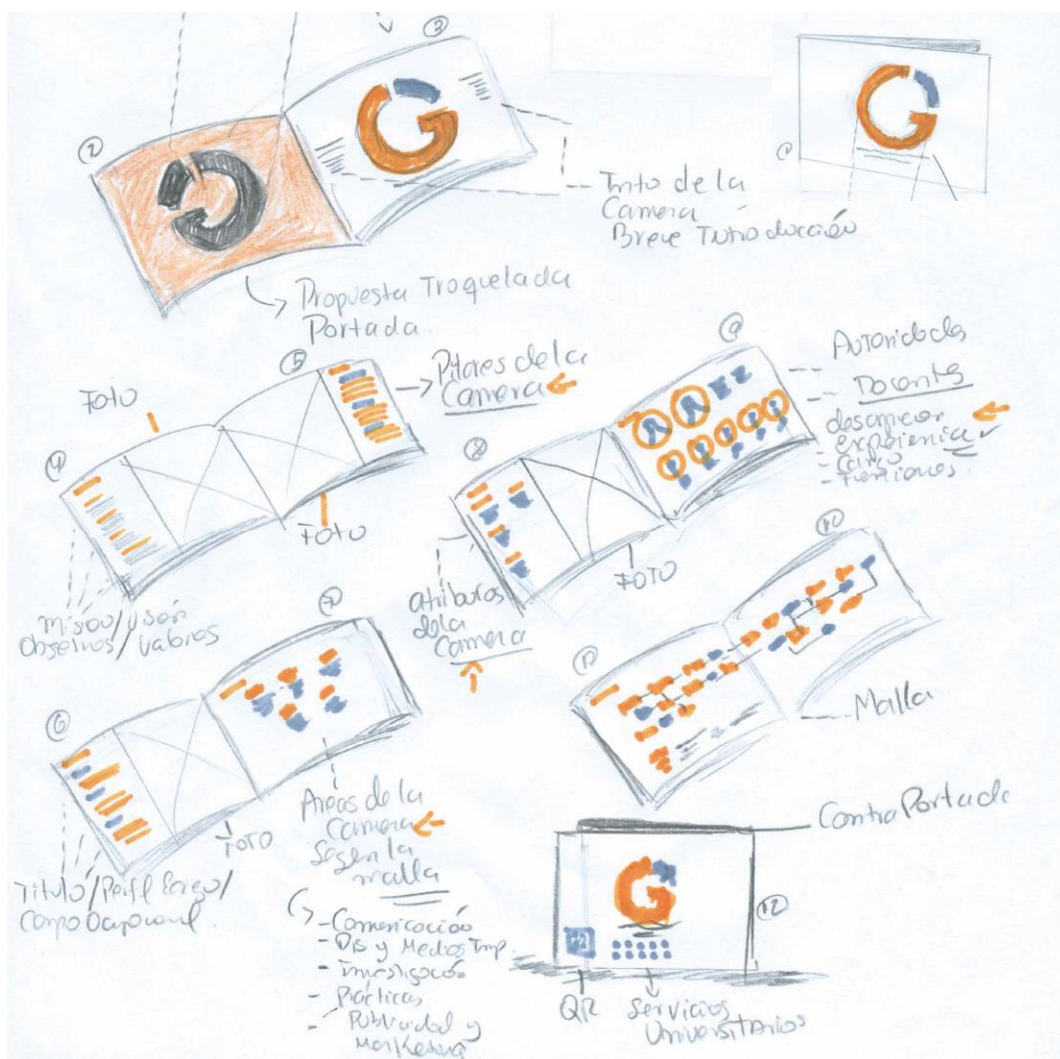 2
3
1
Texto de la
Carrera
Breve Introducción
Propuesta Troquelada
Portada.
Foto
5
Pilares de la
Carrera
4
Foto
Misión/Visión
Objetivos/Valores
9
Autoridades
- Docentes
experiencia
- Cargo
- Funciones.
8
Foto
atributos
de la
Carrera
7
6
Foto
Título/Perfil Egreso/
Campo Ocupacional.
Areas de la
Carrera
Según la
malla
- Comunicación
- Dis y Medios Imp.
- Investigación
- Prácticas
- Publicidad y
Marketing
11
Malla
G
ContraPortada
12
QR
Servicios
Universitarios